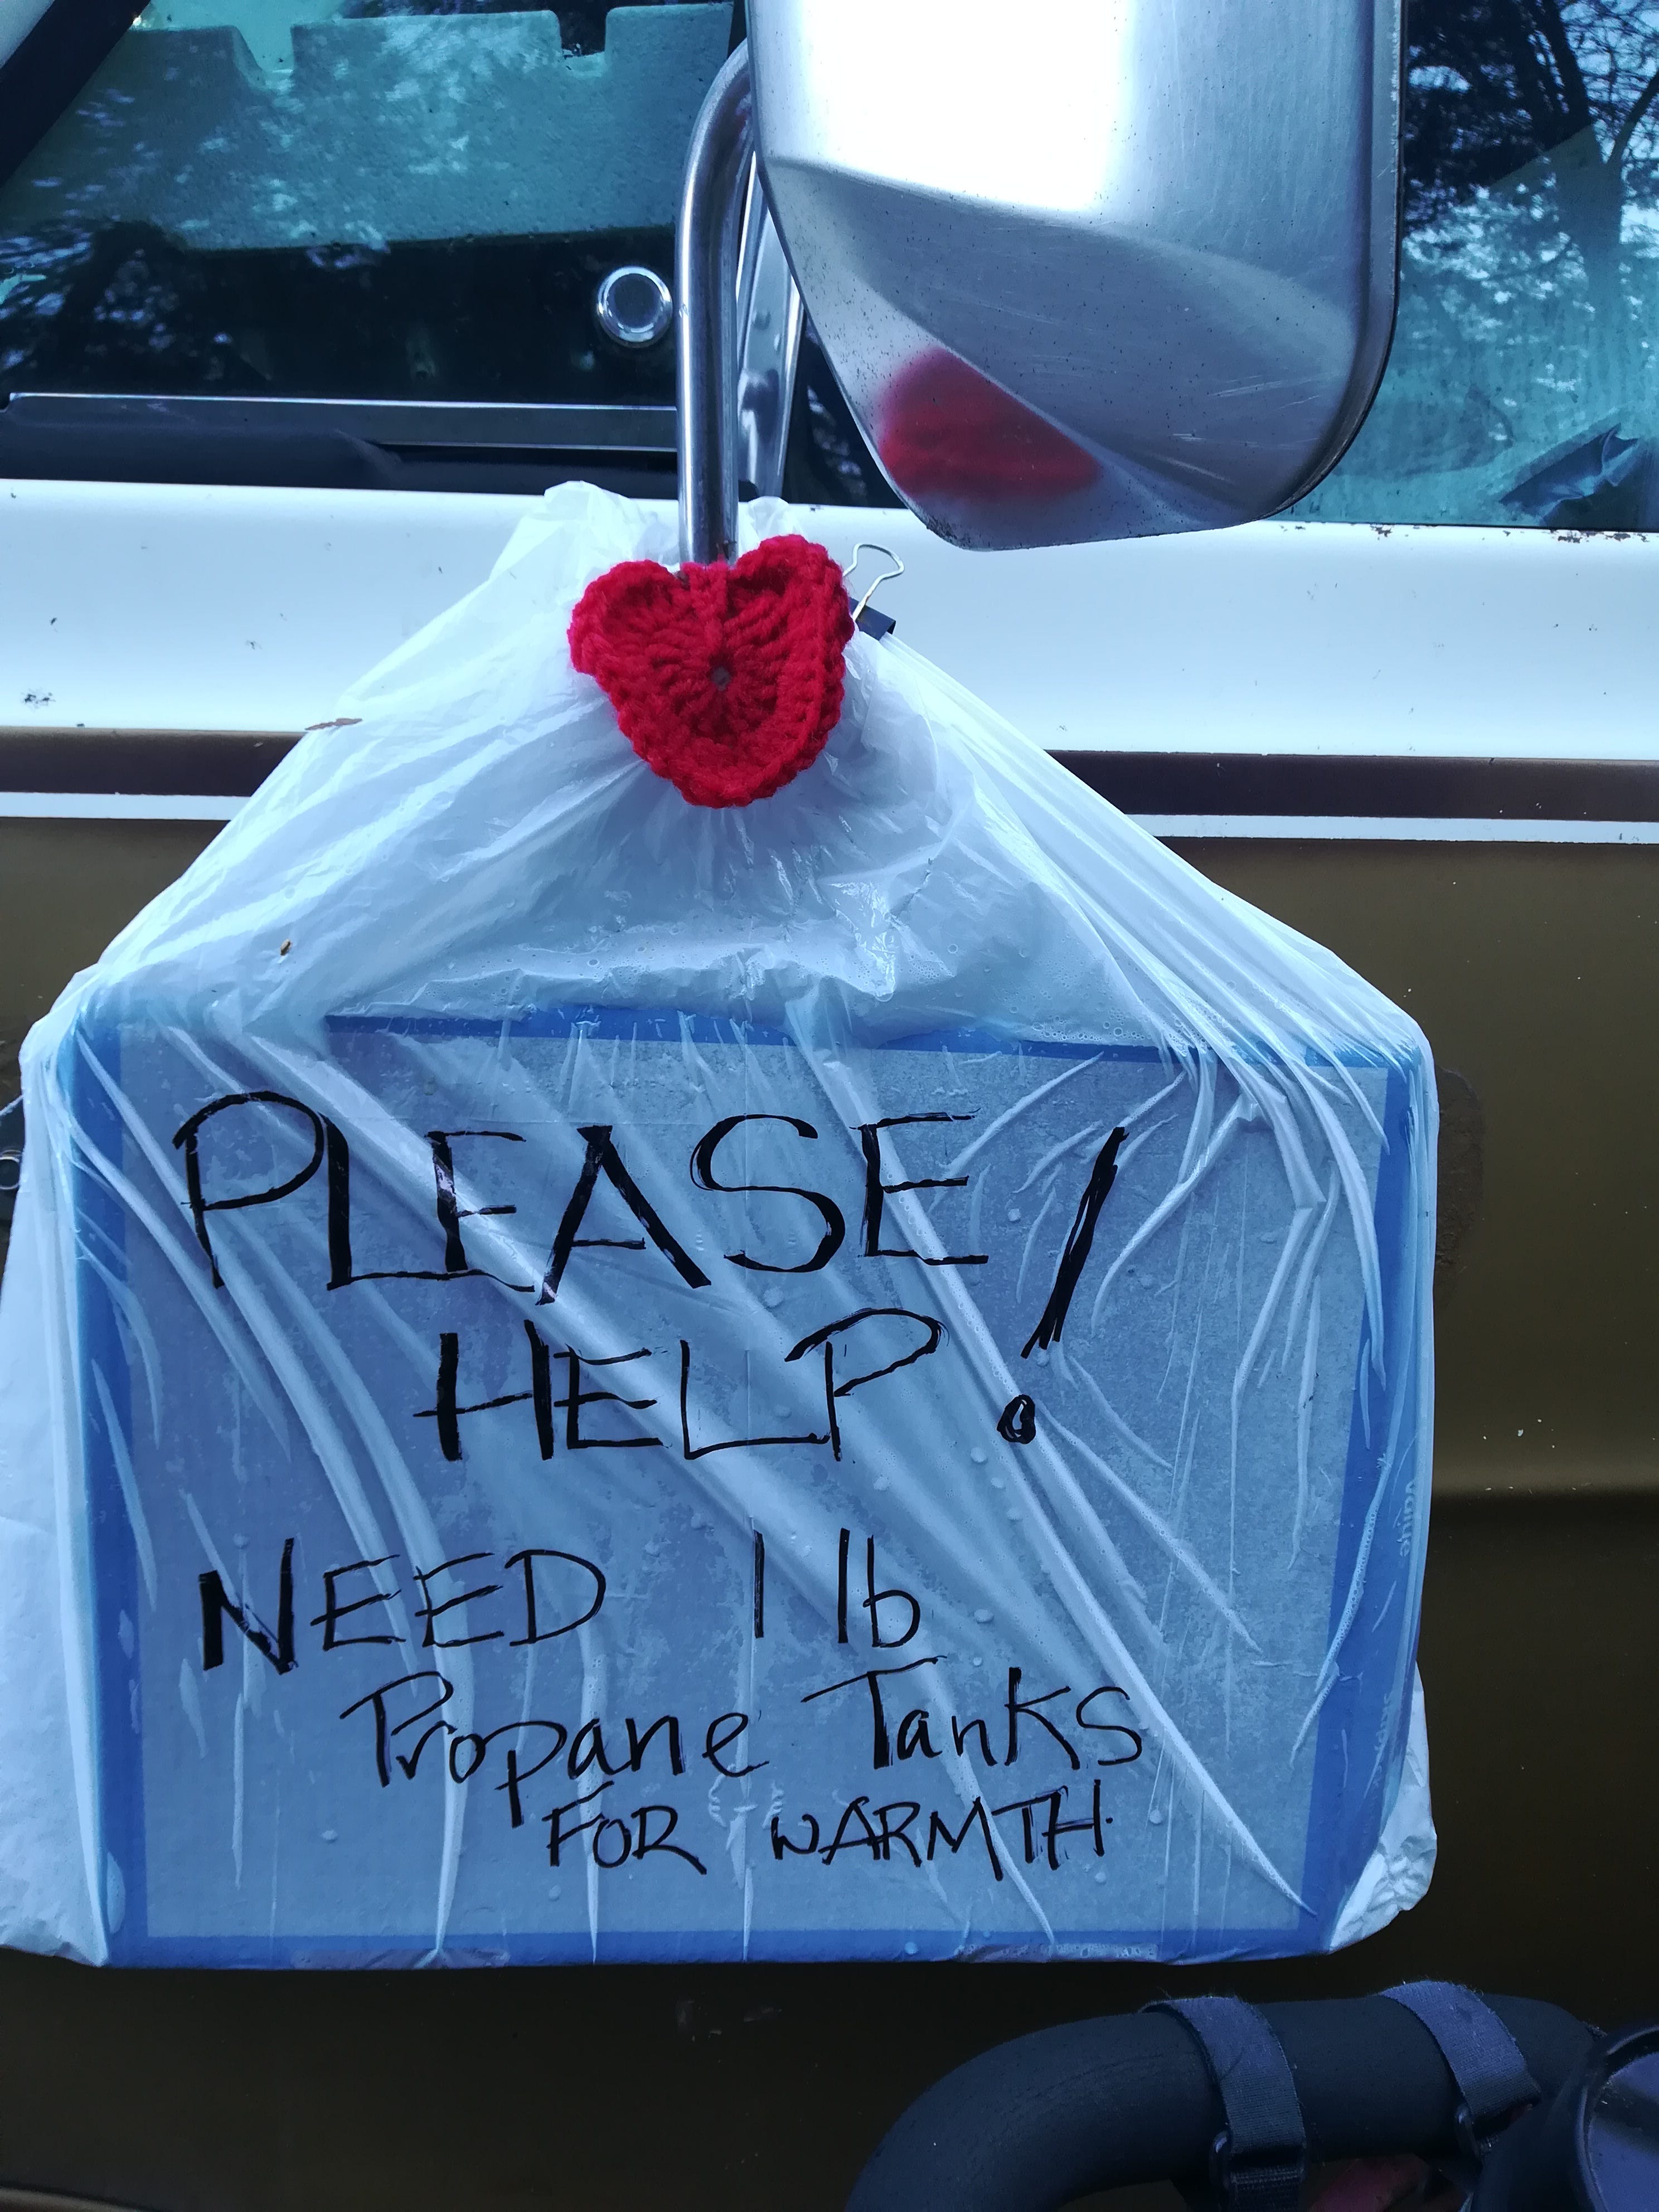 PLEASE!
HELP
NEED 1 lb
Propane Tanks
FOR WARMTH